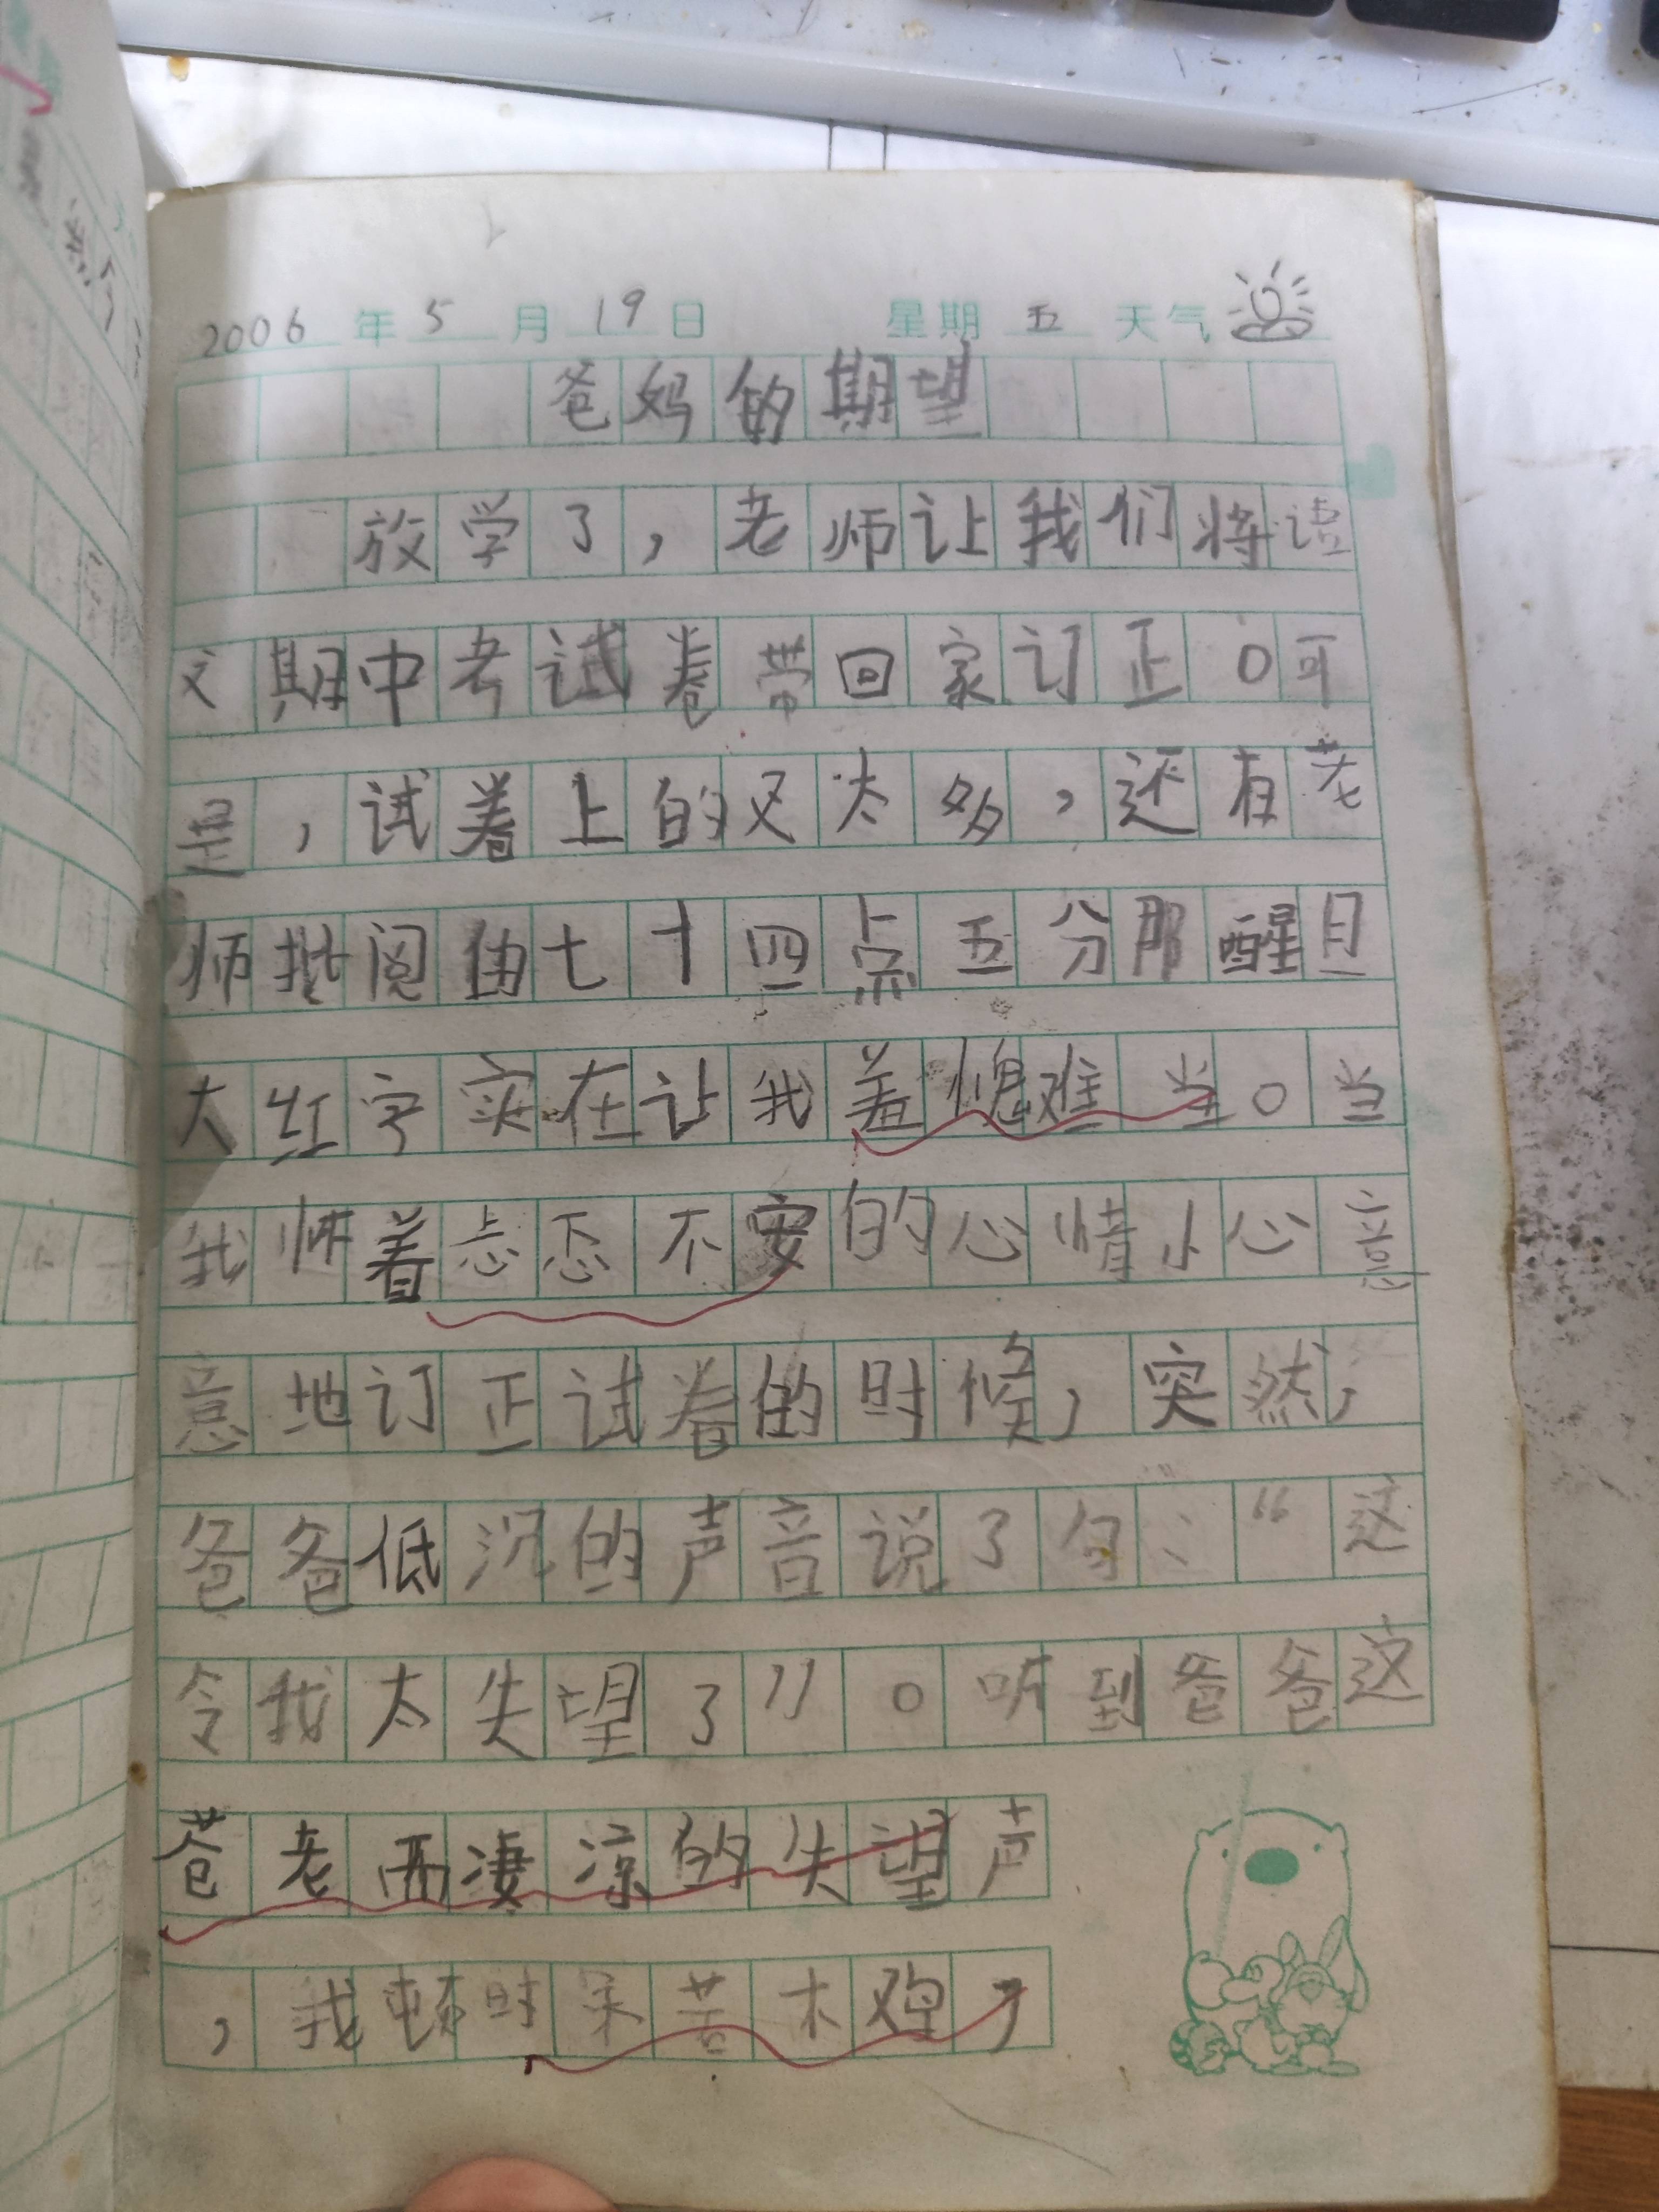 2006年5月19日 星期五 天气
爸妈的期望
放学了，老师让我们将语
文期中考试卷带回家订正。可
是，试着上的又太多，还有老
师批阅的七十四点五分那醒目
大红字实在让我羞愧难当。当
我怀着忐忑不安的心情小心意
意地订正试着的时候，突然，
爸爸低沉的声音说了句：“这
令我太失望了”。听到爸爸这
苍老而凄凉的失望声
，我顿时呆若木鸡，